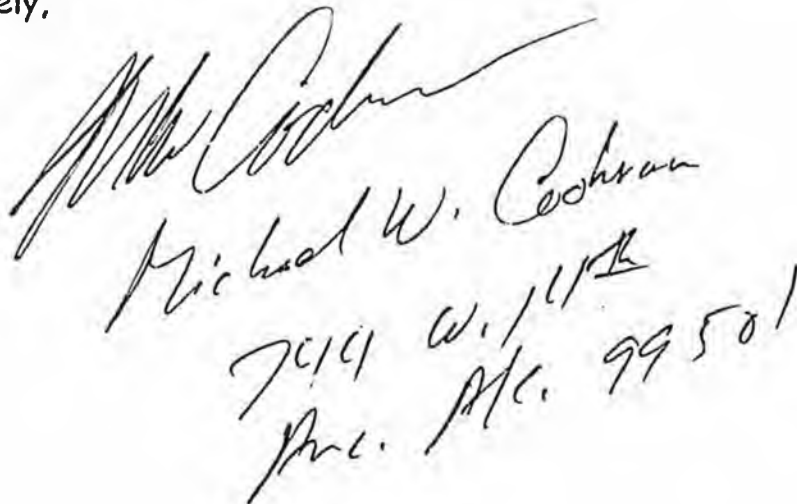 ely,
Mike Cochran
Michael W. Cochran
744 W. 14th
Anc. AK. 99501